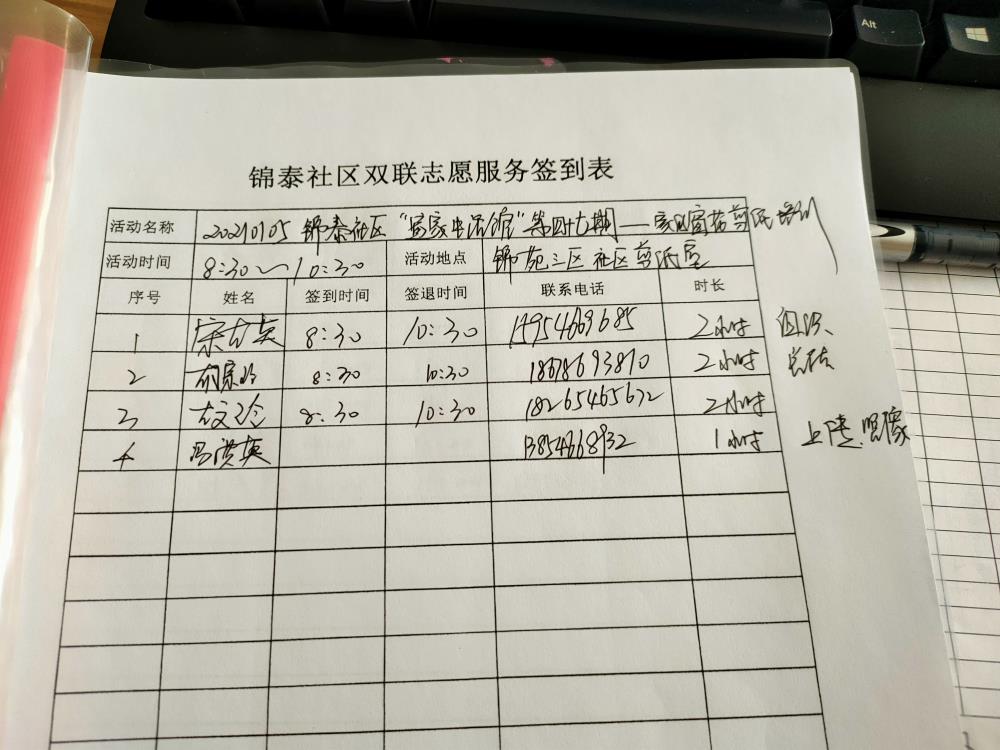 Alt
锦泰社区双联志愿服务签到表
活动名称 20210105 锦泰社区“宜家生活馆”第四十九期——家风窗花剪纸培训
活动时间 8:30～10:30 活动地点 锦苑三区社区剪纸室
序号 姓名 签到时间 签退时间 联系电话 时长
1 8:30 10:30 17954669685 2小时 组织、
2 8:30 10:30 18678693810 2小时 总结
3 8:30 10:30 18265465672 2小时
4 冯洪英 1小时 上传、照像